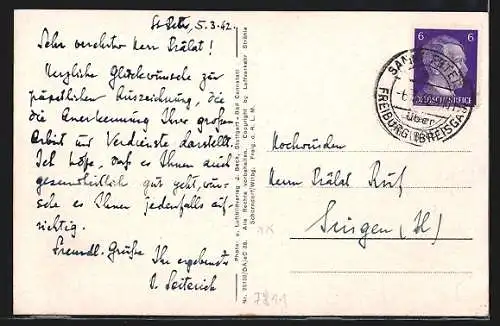 St. Peter, 5.3.42.
Sehr verehrter Herr Prälat!
Herzliche Glückwünsche zur
päpstlichen Auszeichnung, die
die Anerkennung Ihrer großen
Arbeit und Verdienste darstellt.
Ich hoffe, daß es Ihnen auch
gesundheitlich gut geht, wün-
sche es Ihnen jedenfalls auf-
richtig.
Freundl. Grüße Ihr ergebenster
Seiterich
Photo: u. Luftbildverlag J. Beck, Stuttgart-Bad Cannstatt
Alle Rechte vorbehalten. Copyright by Luftverkehr Strähle
Schorndorf/Wttbg. Freig. d. R. L. M.
6 6
DEUTSCHES REICH
SANKT PETER
über
FREIBURG (BREISGAU)
Hochwürden
Herrn Prälat Ruf
Singen (H)
7811